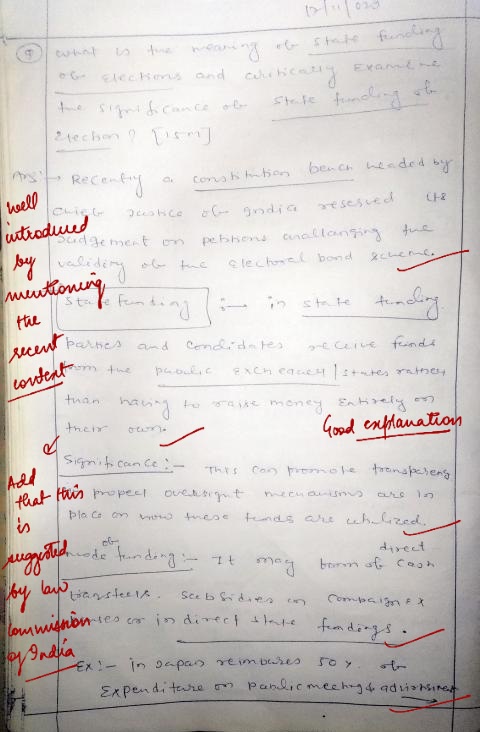 12/11/023
Q what is the meaning of state funding
of elections and critically examine
the significance of state funding of
Election? [15M]
Ans:→ Recently a constitution bench headed by
chief Justice of India reserved its
Judgement on petitions challanging the
validity of the Electoral bond scheme.
well
introduced
by
mentioning
the
recent
context
State funding :→ in state funding
parties and candidates receive funds
from the public exchequer/states rather
than having to raise money entirely on
their own.
Good explanation
Add
that this
is
suggested
by law
commission
of India
Significance:- This can promote transparency
if proper oversight mechanisms are in
place on how these funds are utilized.
mode of funding:- It may form of direct cash
transfers. subsidies on campaign ex
enses or in direct state fundings.
Ex:- in Japan reimburses 50% of
Expenditure on public meeting & advirtisment